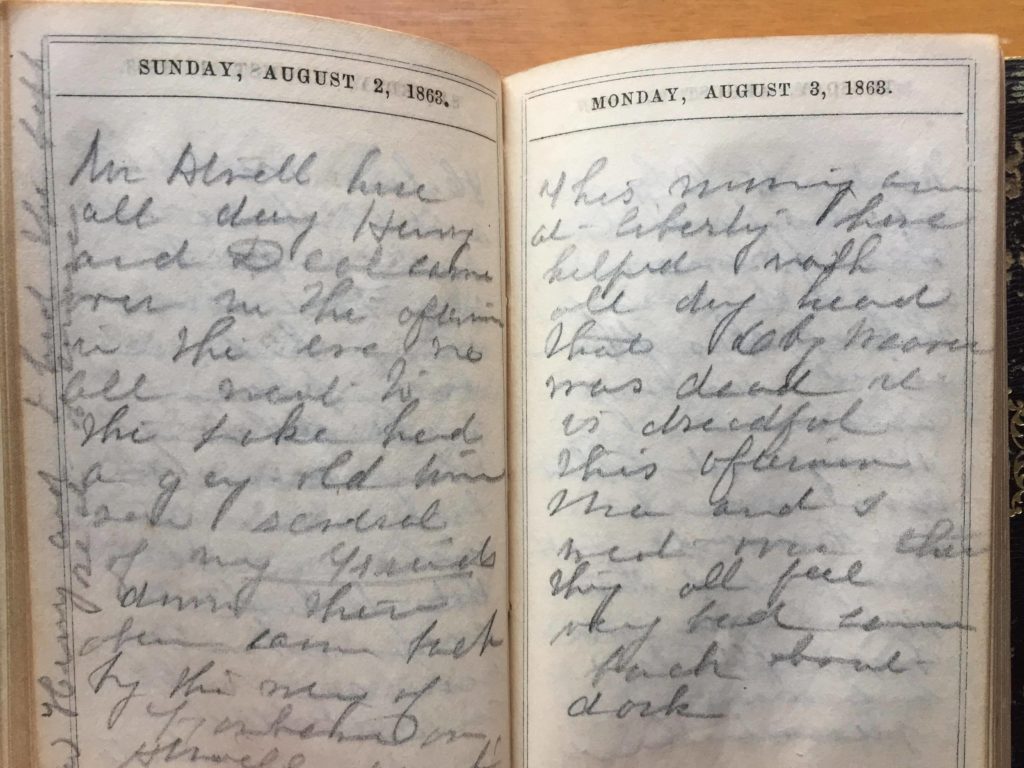 SUNDAY, AUGUST 2, 1863.
Mr Atwell here
all day Henny
and D came
over in the afternoon
in the eve we
all went to
the Lake had
a gay old time
seen several
of my Friends
down there
came back
by the way of
Atwell
MONDAY, AUGUST 3, 1863.
This morning am
at liberty I have
helped wash
all day heard
that Toby Weaver
was dead it
is dreadful
this afternoon
Ma and I
went over there
they all feel
very bad came
back about
dark